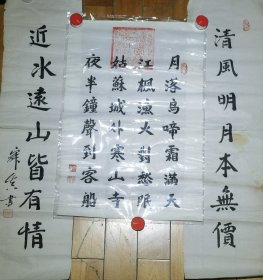 清風明月本無價
月落烏啼霜滿天
江楓漁火對愁眠
姑蘇城外寒山寺
夜半鐘聲到客船
近水遠山皆有情